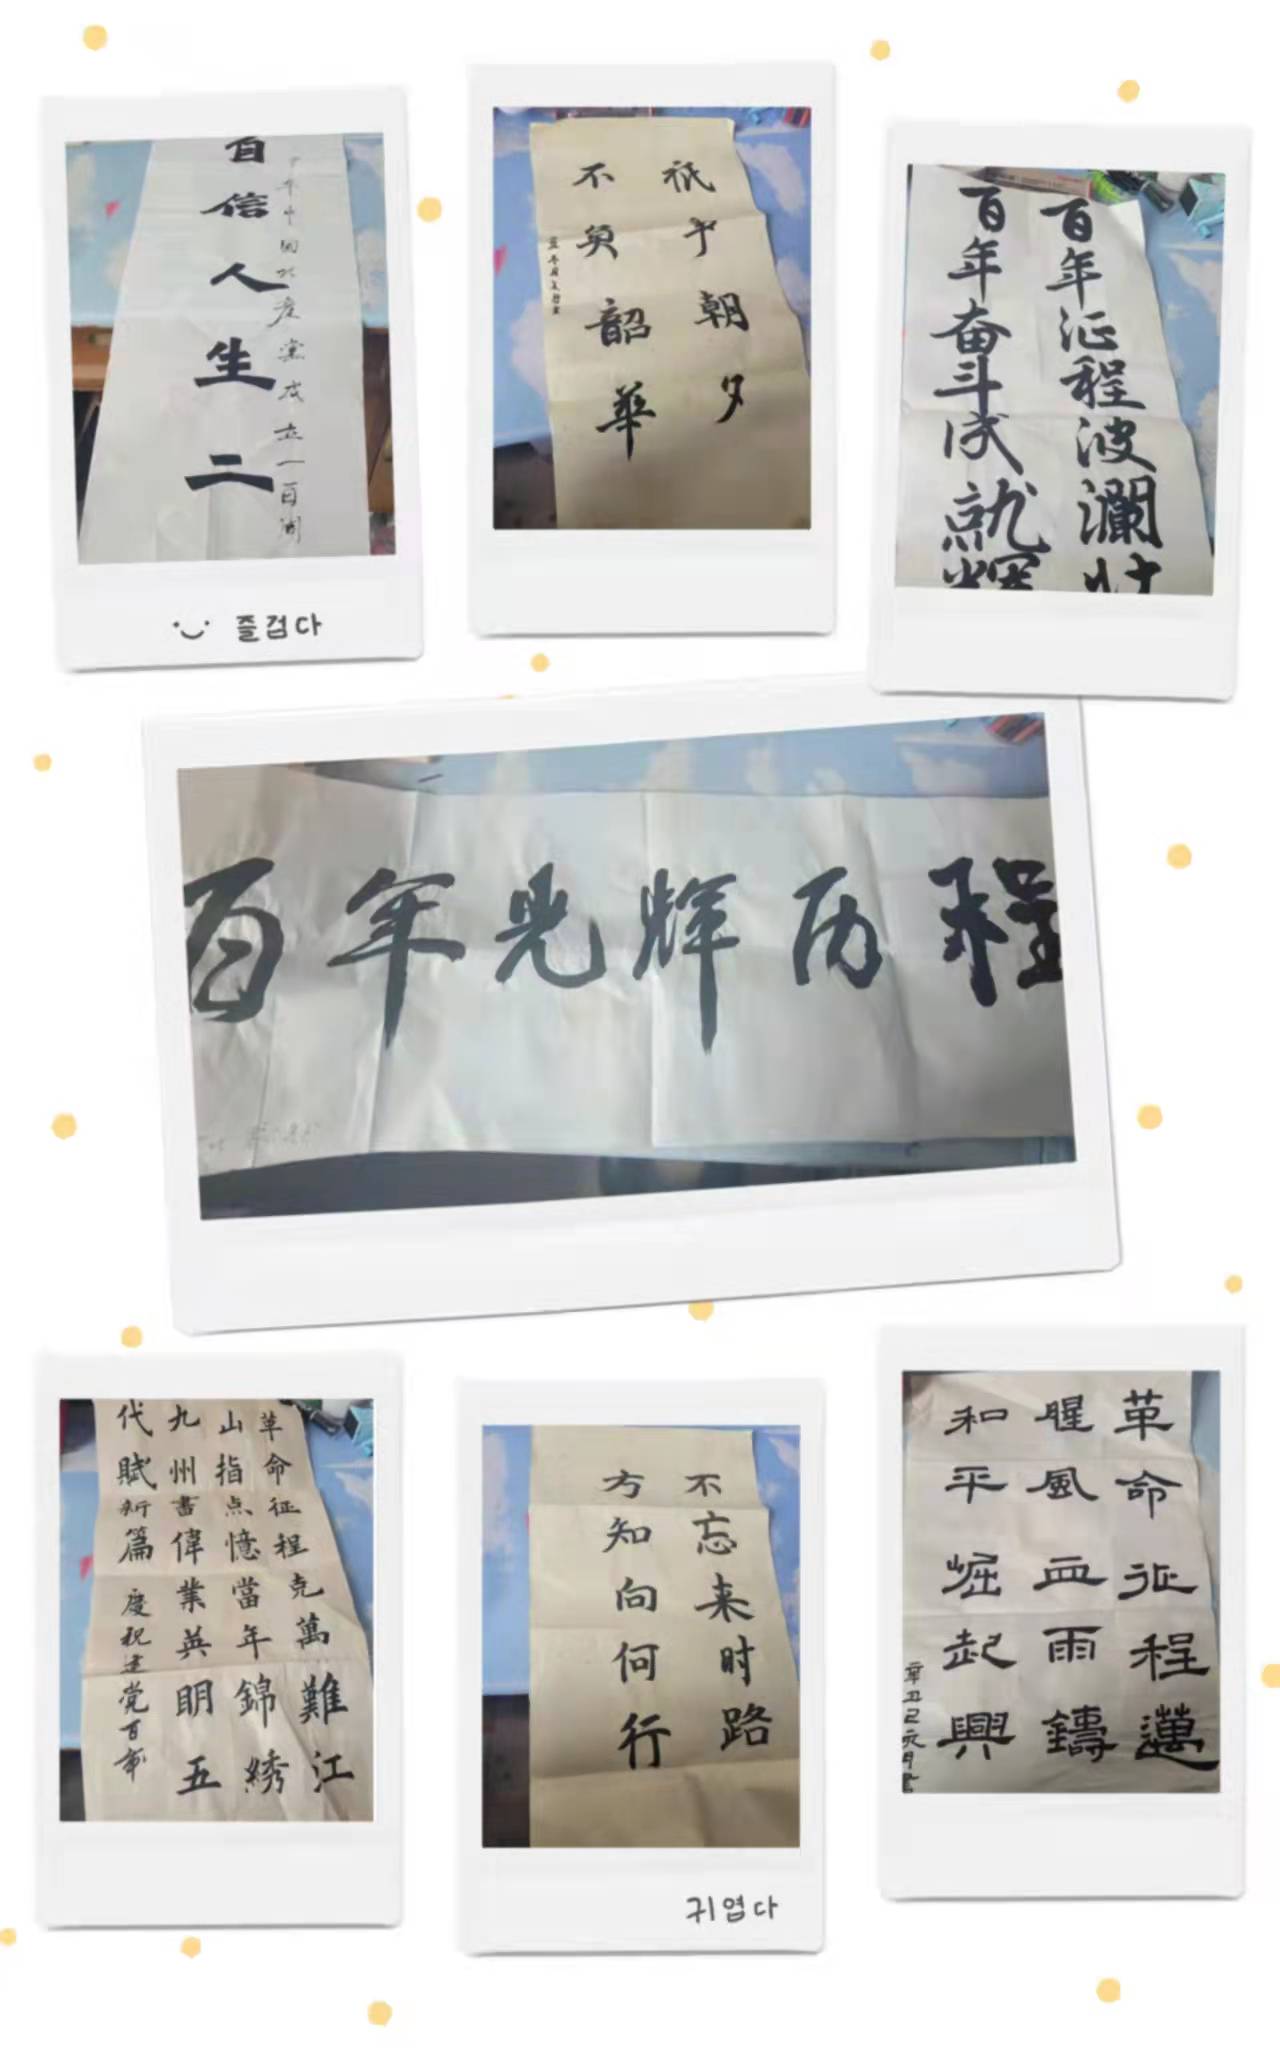 中国共产党成立一百周
自信人生二
즐겁다
祇争朝夕
不負韶華
百年征程波瀾壮
百年奋斗成就輝
百年光辉历程
革命征程克萬難江
山指点憶當年錦綉
九州書偉業英明五
代賦新篇 慶祝建党百年
不忘来时路
方知向何行
귀엽다
革命征程邁
腥風血雨鑄
和平崛起興
辛丑